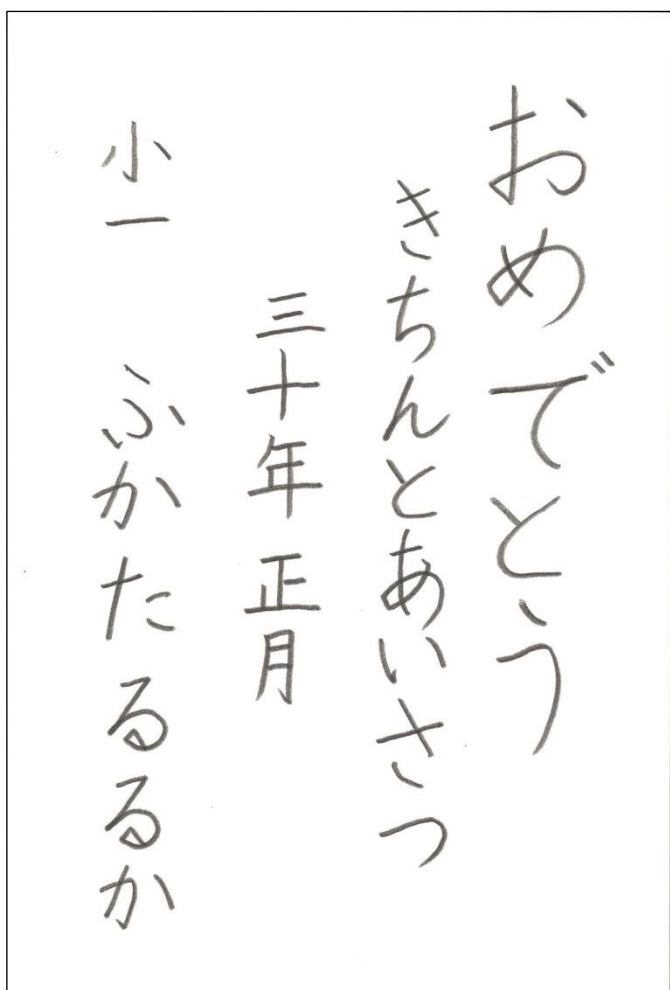 おめでとう
きちんとあいさつ
三十年 正月
小一 ふかたるるか